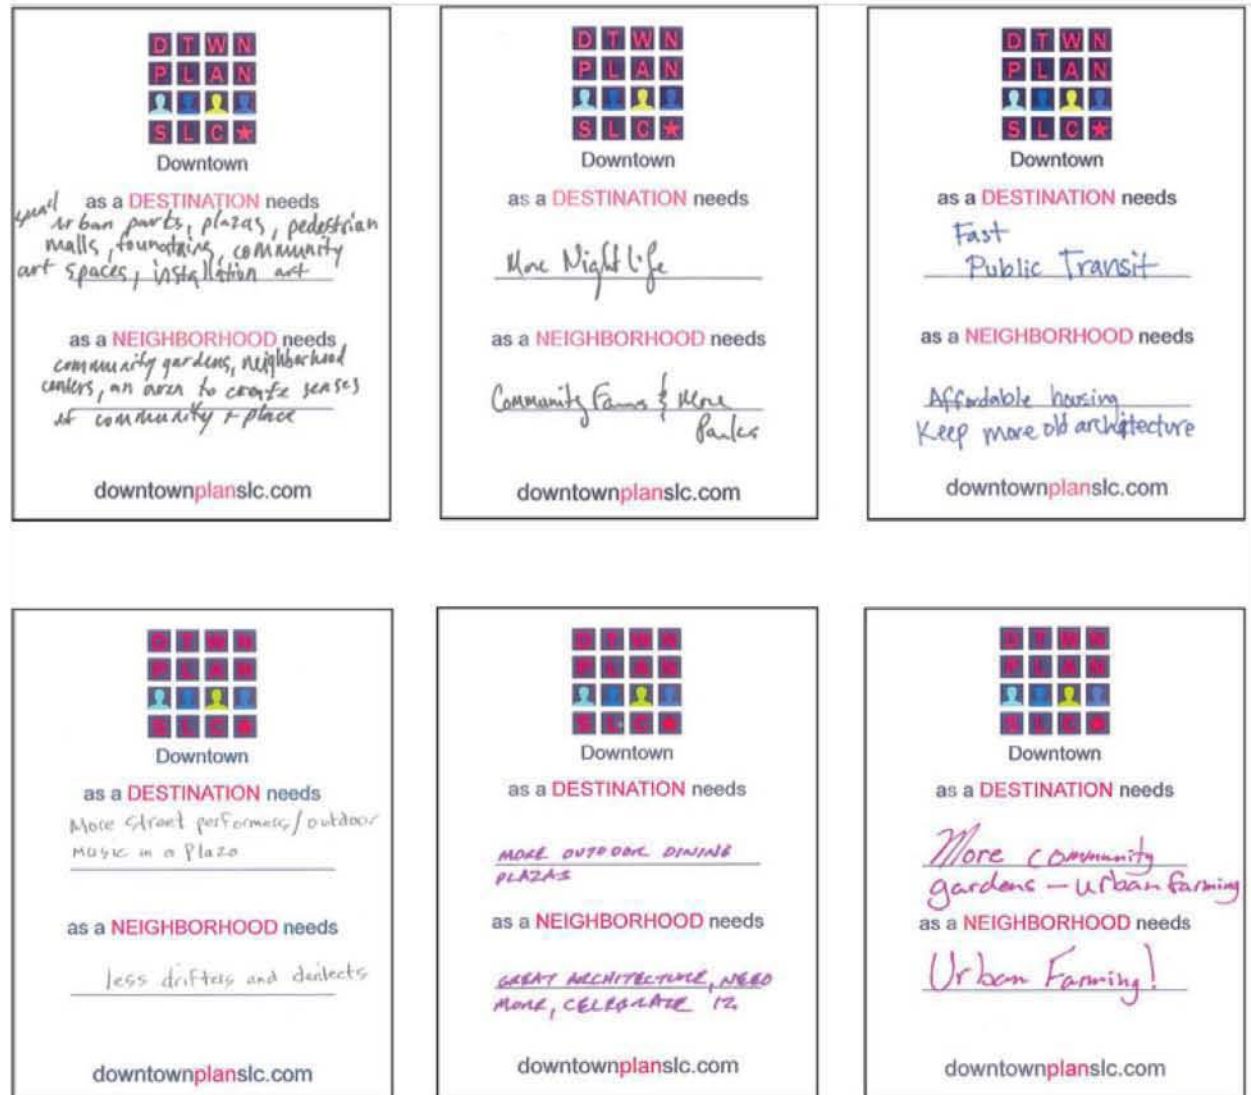 D T W N
P L A N
S L C ★
Downtown
as a DESTINATION needs
small
urban parks, plazas, pedestrian
malls, fountains, community
art spaces, installation art
as a NEIGHBORHOOD needs
community gardens, neighborhood
centers, an area to create senses
of community + place
downtownplanslc.com
D T W N
P L A N
S L C ★
Downtown
as a DESTINATION needs
More Night life
as a NEIGHBORHOOD needs
Community Farms & More
Parks
downtownplanslc.com
D T W N
P L A N
S L C ★
Downtown
as a DESTINATION needs
Fast
Public Transit
as a NEIGHBORHOOD needs
Affordable housing
Keep more old architecture
downtownplanslc.com
D T W N
P L A N
S L C ★
Downtown
as a DESTINATION needs
More street performers/outdoor
music in a Plaza
as a NEIGHBORHOOD needs
less drifters and
downtownplanslc.com
D T W N
P L A N
S L C ★
Downtown
as a DESTINATION needs
MORE OUTDOOR DINING
PLAZAS
as a NEIGHBORHOOD needs
GREAT ARCHITECTURE, NEED
MORE, CELEBRATE IT.
downtownplanslc.com
D T W N
P L A N
S L C ★
Downtown
as a DESTINATION needs
More community
gardens – urban farming
as a NEIGHBORHOOD needs
Urban Farming!
downtownplanslc.com